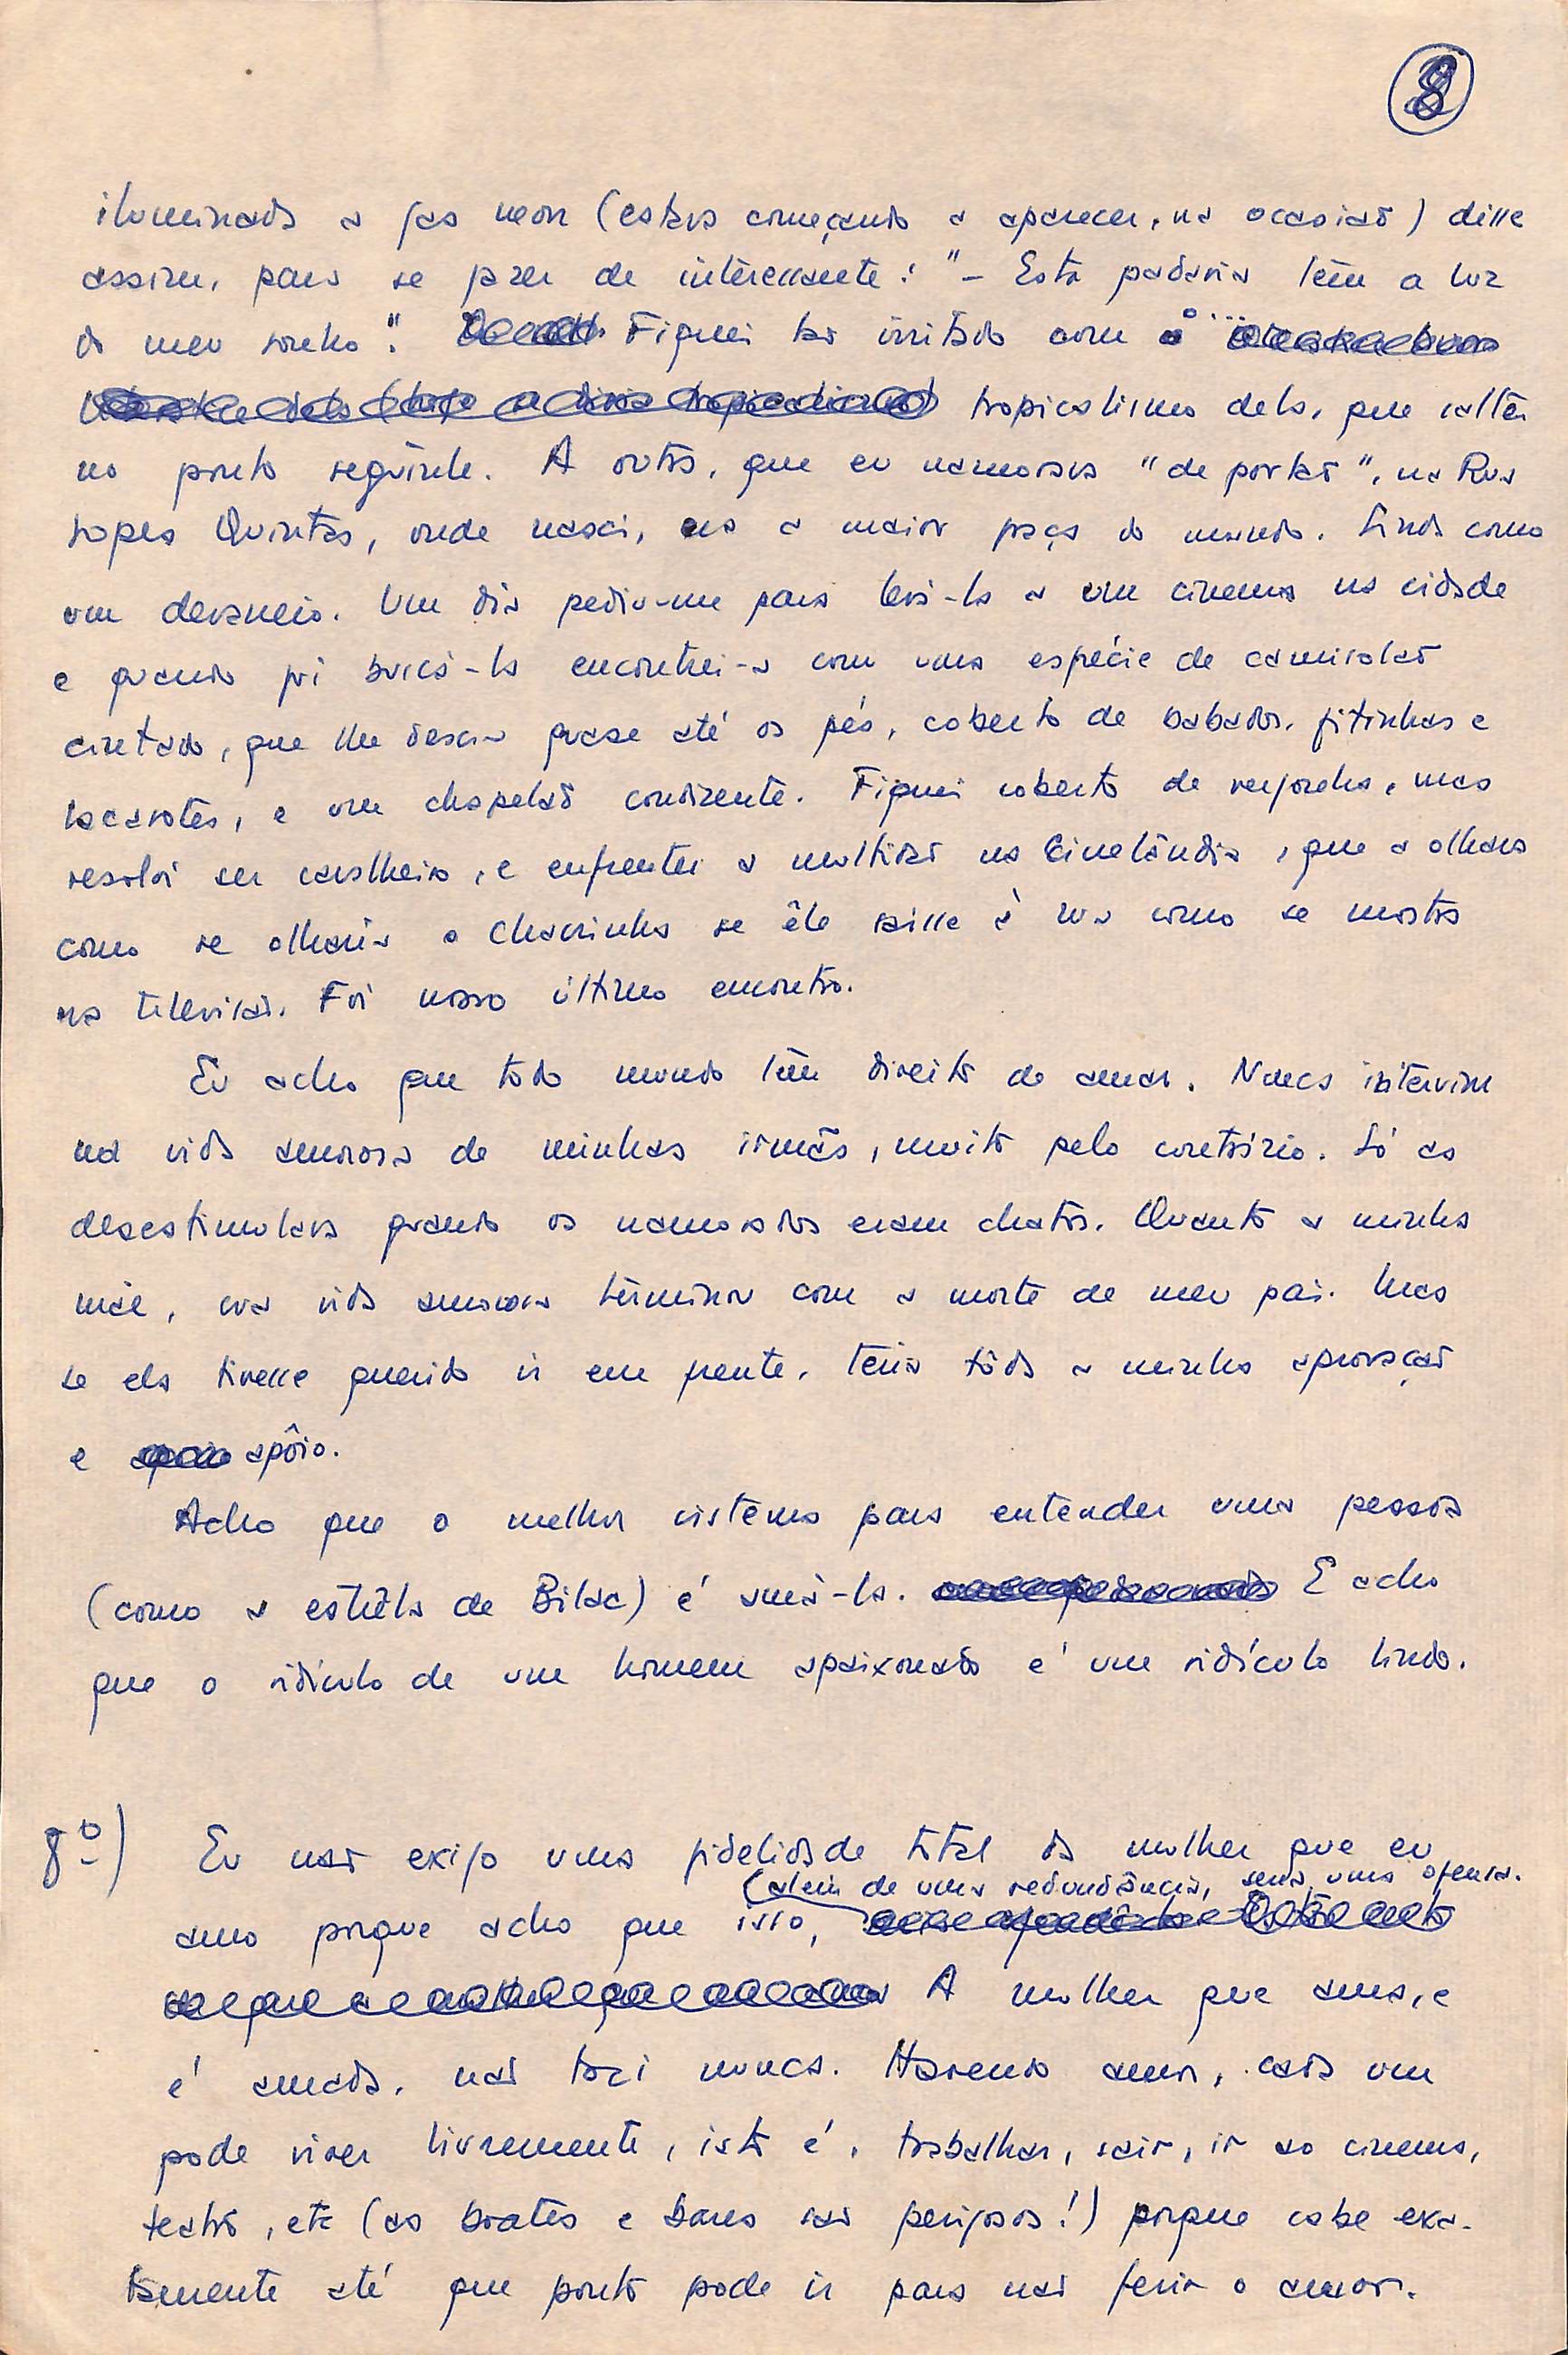 8
iluminada a gas neon (estava começando a aparecer, na ocasião) disse
assim, para se fazer de interessante: "- Esta padaria tem a luz
do meu sonho". Fiquei tão irritado com o
tropicalismo dela, que saltei
no ponto seguinte. A outra, que eu namorava "de portão", na Rua
Lopes Quintas, onde nasci, era a maior graça do mundo. Linda como
um devaneio. Um dia pediu-me para levá-la a um cinema na cidade
e quando fui buscá-la encontrei-a com uma espécie de camisolão
cintado, que lhe descia quase até os pés, coberto de babados, fitinhas e
laçarotes, e um chapelão condizente. Fiquei coberto de vergonha, mas
resolvi ser cavalheiro, e enfrentei a multidão na Cinelândia, que a olhava
como se olharia o Chacrinha se êle saisse à rua como se mostra
na televisão. Foi nosso último encontro.
Eu acho que todo mundo têm direito de amar. Nunca intervim
na vida amorosa de minhas irmãs, muito pelo contrário. Só as
desestimulava quando os namorados eram chatos. Quanto a minha
mãe, sua vida amorosa terminou com a morte de meu pai. Mas
se ela tivesse querido ir em frente, teria tôda a minha aprovação
e apôio.
Acho que o melhor sistema para entender uma pessoa
(como a estrêla de Bilac) é amá-la. E acho
que o ridículo de um homem apaixonado é um ridículo lindo.
8º) Eu não exijo uma fidelidade total da mulher que eu
(além de uma redundância, seria uma ofensa.
amo porque acho que isso,
A mulher que ama, e
é amada, não trai nunca. Havendo amor, cada um
pode viver livremente, isto é, trabalhar, sair, ir ao cinema,
teatro, etc (as boates e bares são perigosos!) porque sabe exa-
tamente até que ponto pode ir para não ferir o amor.